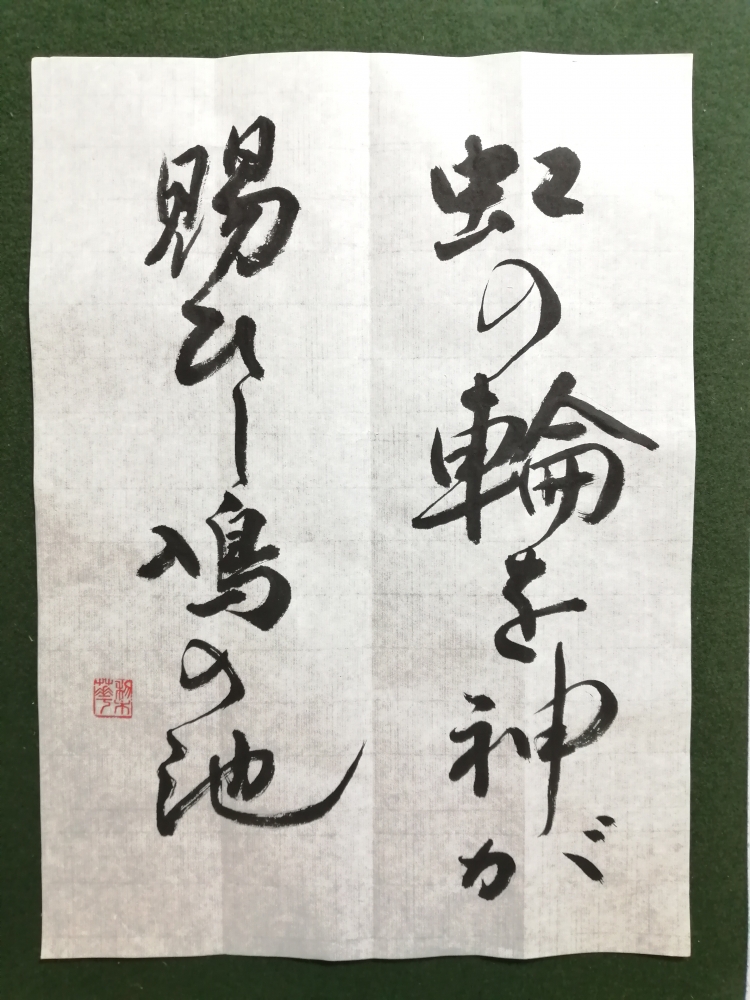 虹の輪を神が
賜ひし鳰の池